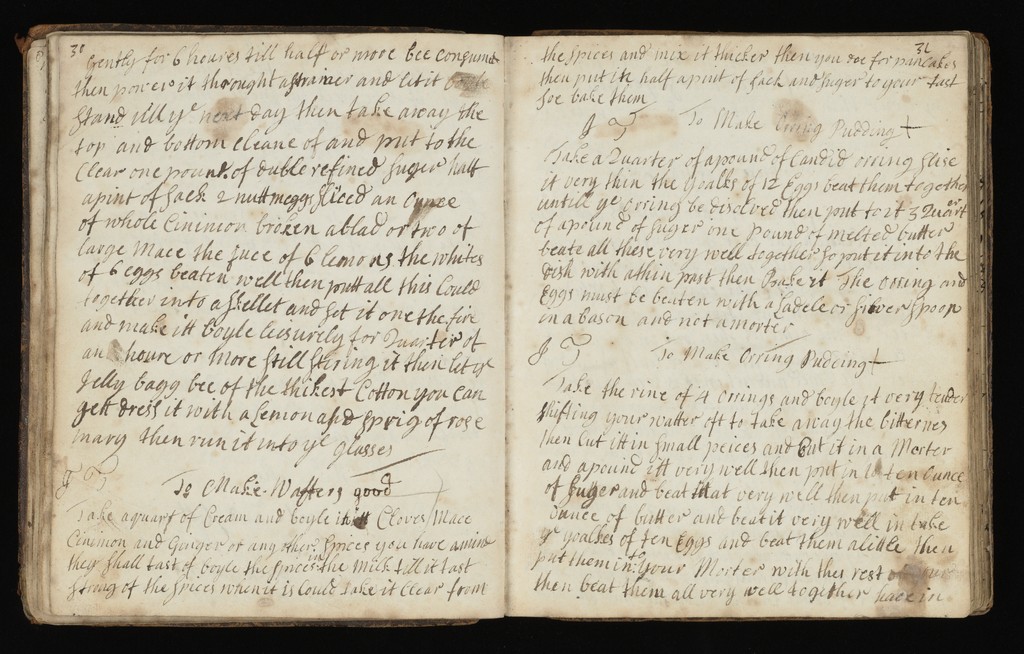 30
Gently for 6 houres till half or more bee consumd
then power it throught a strainer and let it
stand till ye next day then take away the
top and bottom cleane of and put to the
Clear one pound of duble refined suger half
a pint of sack 2 nuttmeggs sliced an ounce
of whole Cininion broken a blad or two of
large Mace the juce of 6 lemons the whites
of 6 eggs beaten well then putt all this Could
together into a skellet and set it one the fire
and make itt boyle leisurely for Quarter of
an houre or more still stiring it then let ye
Jelly bagg bee of the thikest Cotton you can
gett dress it with a lemon and sprig of rose
mary then run it into ye glasses
J T
To Make Waffers good
Take a quart of Cream and boyle itt Cloves Mace
Cininion and Ginger or any other Spices you have a mind
they shall tast of boyle the spices in the milk till it tast
strong of the spices when it is Could take it Clear from
31
the spices and mix it thicker then you doe for pancakes
then put in half a pint of sack and suger to your tast
soe bake them
J T To Make Orring Pudding
Take a Quarter of a pound of Candid orring slise
it very thin the yoalks of 12 Eggs beat them together
untill ye orring be disolved then put to it 3 Quarter
of a pound of suger one pound of melted butter
beate all these very well together so put it into the
dish with a thin past then Bake it The orring and
Eggs must be beaten with a Ladele or silver spoon
in a bason and not a morter
J T To Make Orring Pudding
Take the rine of 4 orrings and boyle it very tender
shifting your watter oft to take away the bitternes
then Cut itt in small peices and Put it in a Morter
and a pound itt very well then put in ten ounce
of suger and beat that very well then put in ten
ounce of butter and beat it very well in take
ye yoalkes of ten Eggs and beat them a little then
put them in to your Morter with the rest
then beat them all very well together have in